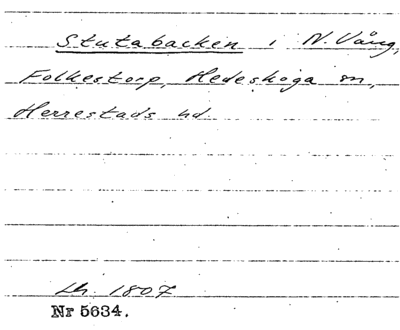 Stutabacken i N. Vång,
Folkestorp, Hedeskoga sn,
Herrestads hd.
Lh. 1807
Nr 5634.